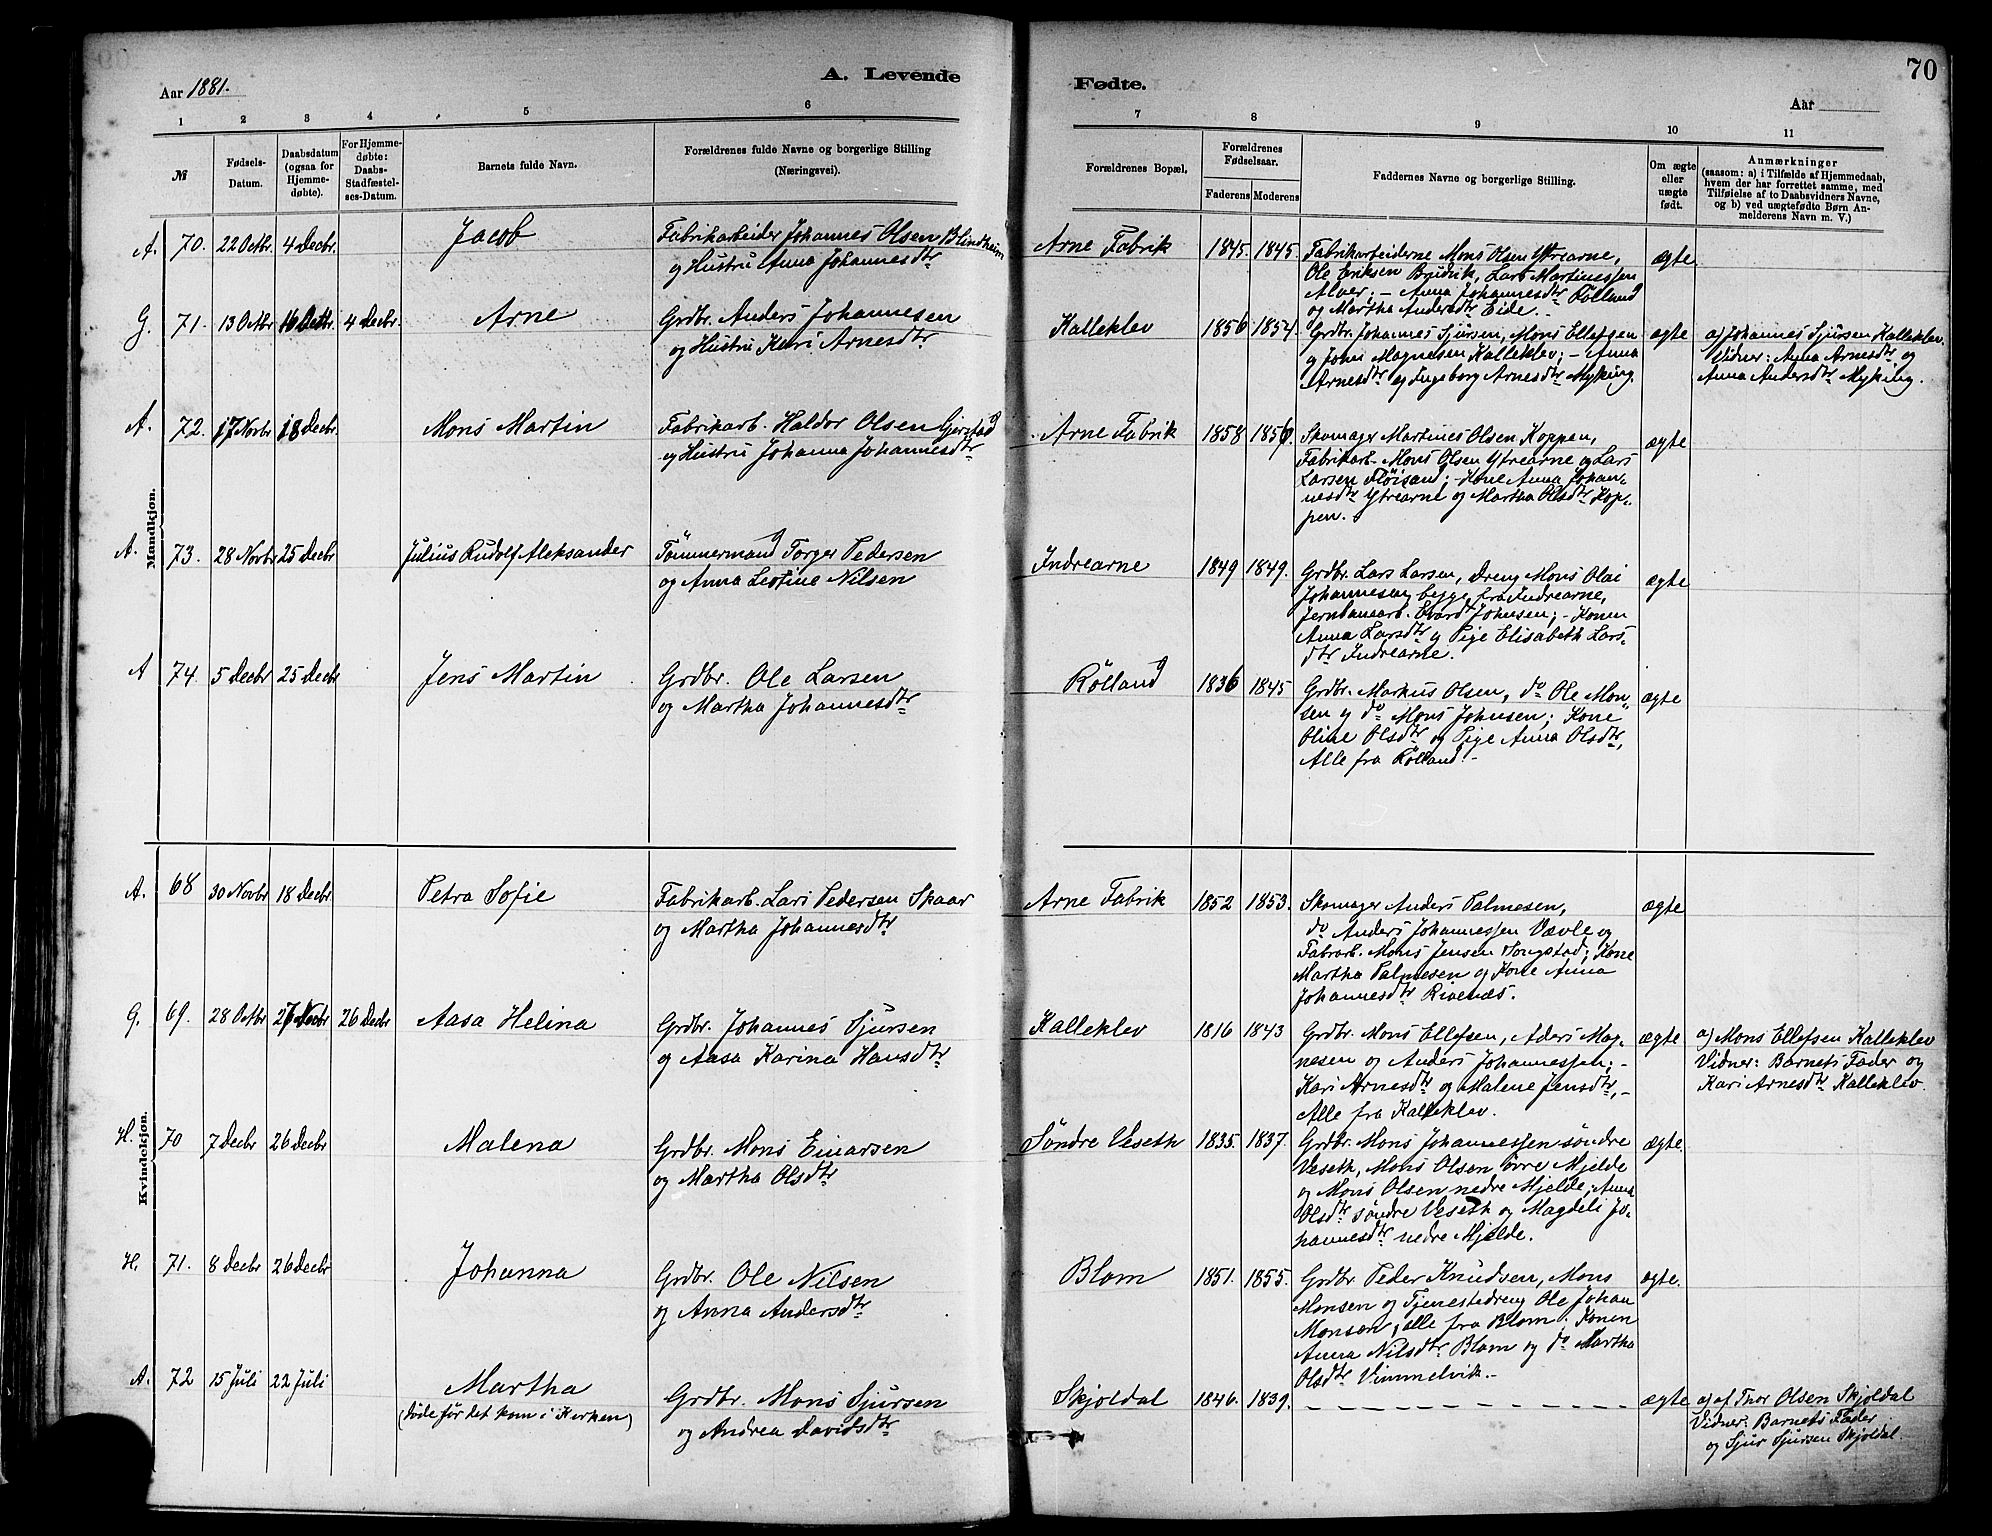 70
A. Levende
Fødte.
Aar 1881.
Aar
1 2 3 4 5 6
7 8 9 10 11
№
Fødsels-
Datum.
Daabsdatum
(ogsaa for
Hjemme-
døbte).
For Hjemme-
døbte:
Daabs-
Stadfæstel-
ses-Datum.
Barnets fulde Navn.
Forældrenes fulde Navne og borgerlige Stilling
(Næringsvei).
Forældrenes Bopæl.
Forældrenes
Fødselsaar.
Faderens Moderens
Faddernes Navne og borgerlige Stilling.
Om ægte
eller
uægte
født.
Anmærkninger
(saasom: a) i Tilfælde af Hjemmedaab,
hvem der har forrettet samme, med
Tilføielse af to Daabsvidners Navne,
og b) ved uægtefødte Børn An-
melderens Navn m. V.)
Mandkjøn.
A. 70. 22 Octbr. 4 Decbr. Jacob
Fabrikarbeider Johannes Olsen Blindheim
og Hustru Anna Johannesdtr
Arne Fabrik 1845. 1845.
Fabrikarbeiderne Mons Olsen Ytrearne,
Ole Eriksen Brudvik, Lars Martinessen
Alver; – Anna Johannesdtr Rølland
og Martha Andersdtr Eide.
ægte
G. 71. 13 Octbr 16 Octbr. 4 Decbr. Arne
Grdbr. Anders Johannesen
og Hustru Kari Arnesdtr
Kalleklev 1856 1854.
Grdbr. Johannes Sjursen, Mons Ellefsen
og Johs Magnesen Kalleklev; – Anna
Arnesdtr og Ingeborg Arnesdtr Myking.
ægte
a) Johannes Sjursen Kalleklev.
Vidner: Anna Arnesdtr og
Anna Andersdtr Myking.
A. 72. 17 Novbr 18 Decbr. Mons Martin
Fabrikarb. Haldor Olsen Gjerstad
og Hustru Johanna Johannesdtr
Arne Fabrik 1858 1856.
Skomager Martines Olsen Koppen,
Fabrikarb. Mons Olsen Ytrearne og Lars
Larsen Fløisand; – Kone Anna Johan-
nesdtr Ytrearne og Martha Olsdtr Kop-
pen.
ægte
A. 73. 28 Novbr 25 Decbr. Julius Rudolf Aleksander
Tømmermand Torger Pedersen
og Anna Leotine Nilsen
Indrearne 1849 1849.
Grdbr. Lars Larsen, Dreng Mons Olai
Johannesen begge fra Indrearne,
Jernbanearb. Evard Johnsen; – Konen
Anna Larsdtr og Pige Elisabeth Lars-
dtr Indrearne.
ægte
A 74. 5 Decbr 25 Decbr Jens Martin
Grdbr. Ole Larsen
og Martha Johannesdtr
Rølland 1836 1845
Grdbr. Markus Olsen, do Ole Mon-
sen og do Mons Johnsen; Kone
Oline Olsdtr og Pige Anna Olsdtr,
Alle fra Rølland. –
ægte
Kvindekjøn.
A. 68 30 Novbr 18 Decbr Petra Sofie
Fabrikarb. Lars Pedersen Skaar
og Martha Johannesdtr
Arne Fabrik 1852 1853.
Skomager Anders Palmesen,
do Anders Johannessen Vævle og
Fabrarb. Mons Jensen Songstad; Kone
Martha Palmesen og Kone Anna
Johannesdtr Rivenæs.
ægte
G. 69. 28 Octbr 27 Novbr 26 Decbr Aasa Helina
Grdbr. Johannes Sjursen
og Aasa Karina Hansdtr
Kalleklev 1816 1843
Grdbr. Mons Ellefsen, Aders Mag-
nesen og Anders Johannessen; –
Kari Arnesdtr og Malene Jensdtr, –
Alle fra Kalleklev.
ægte
a) Mons Ellefsen Kalleklev
Vidner: Barnets Fader og
Kari Arnesdtr Kalleklev.
H. 70 7 Decbr 26 Decbr Malena
Grdbr. Mons Einarsen
og Martha Olsdtr
Søndre Veseth 1835. 1837.
Grdbr. Mons Johannessen søndre
Veseth, Mons Olsen øvre Mjelde
og Mons Olsen nedre Mjelde; Anna
Olsdtr søndre Veseth og Magdeli Jo-
hannesdtr nedre Mjelde.
ægte.
H. 71. 8 Decbr 26 Decbr Johanna
Grdbr. Ole Nilsen
og Anna Andersdtr
Blom 1851. 1855.
Grdbr. Peder Knudsen, Mons
Monsen og Tjenestedreng Ole Johan
Monsen, alle fra Blom. Konen
Anna Nilsdtr Blom og do Martha
Olsdtr Vimmelvik. –
ægte.
A. 72 15 Juli 22 Juli Martha
(døde før det kom i Kirken)
Grdbr. Mons Sjursen
og Andrea Davidsdtr
Skjoldal 1846. 1839.
ægte
a) af Thor Olsen Skjoldal
Vidner: Barnets Fader
og Sjur Sjursen Skjoldal.